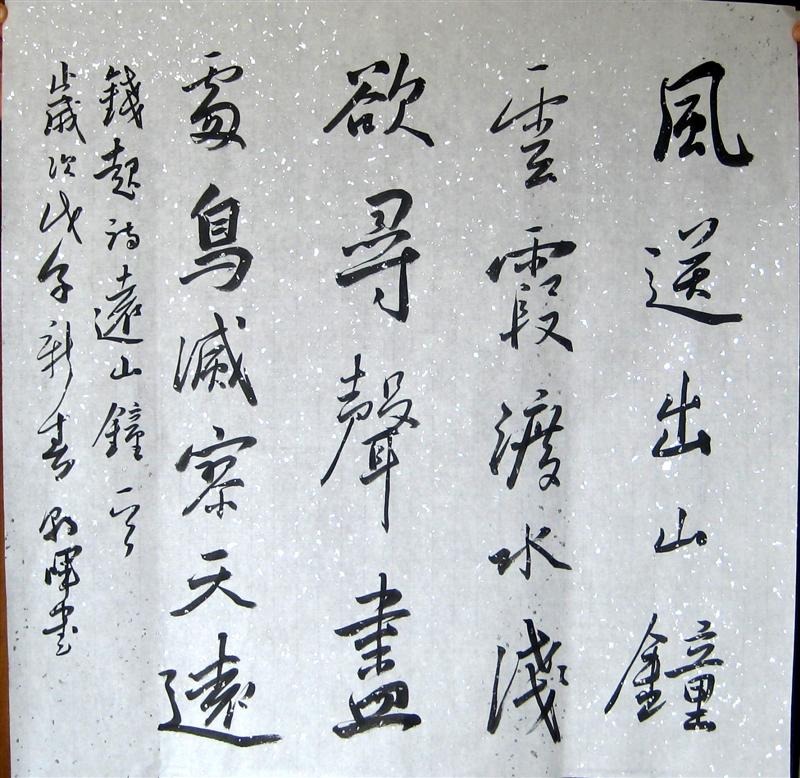 風送出山鐘
雲霞渡水淺
欲尋聲盡
處鳥滅寥天遠
錢起詩遠山鐘一首
歲次戊子新春暉書